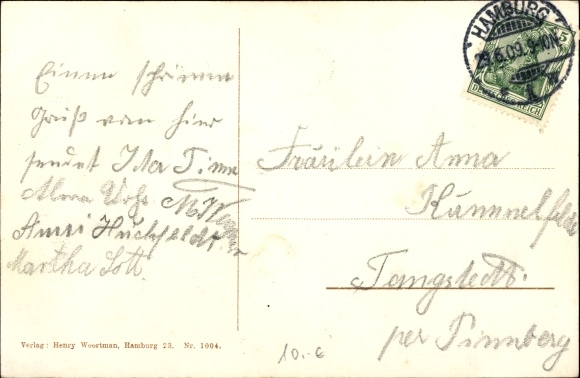 Einen schönen
Gruß von hier
sendet Ida Timm
Alma
Anni Huckfeldt
Martha Lott.
Verlag: Henry Woortman, Hamburg 23. Nr. 1004.
HAMBURG
29.6.09. 9-10N
5
DEUTSCHES REICH
Fräulein Anna
Kummelfeld
Tangstedt.
per Pinneberg
10.-€